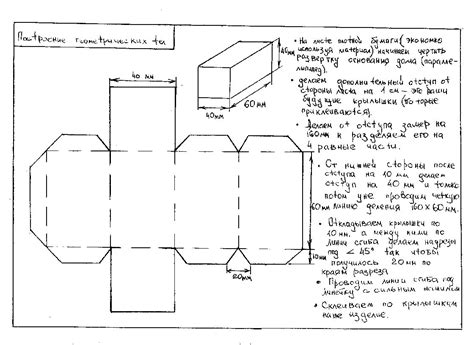 Построение геометрических тел
40 мм
45мм
40мм
60мм
• на листе плотной бумаги (экономно
используй материал) начинаем чертить
развертку основания дома (паралле-
лепипед).
• делаем дополнительный отступ от
стороны листа на 1 см - это ваши
будущие крылышки (которые
приклеиваются).
• делаем от отступа замер на
160мм и разделяем его на
4 равные части.
• От нижней стороны после
отступа на 10 мм делаем
отступ на 40 мм и только
потом уже проводим четкую
60мм
линию деления 160х60мм.
• Откладываем крылышки по
10 мм, а между ними по
линии сгиба делаем надрезы
под < 45° так чтобы
получилось 20мм по
краям разреза
10мм
20мм
• Проводим линии сгиба под
линейку с сильным нажимом
• Склеиваем по крылышкам
наше изделие.